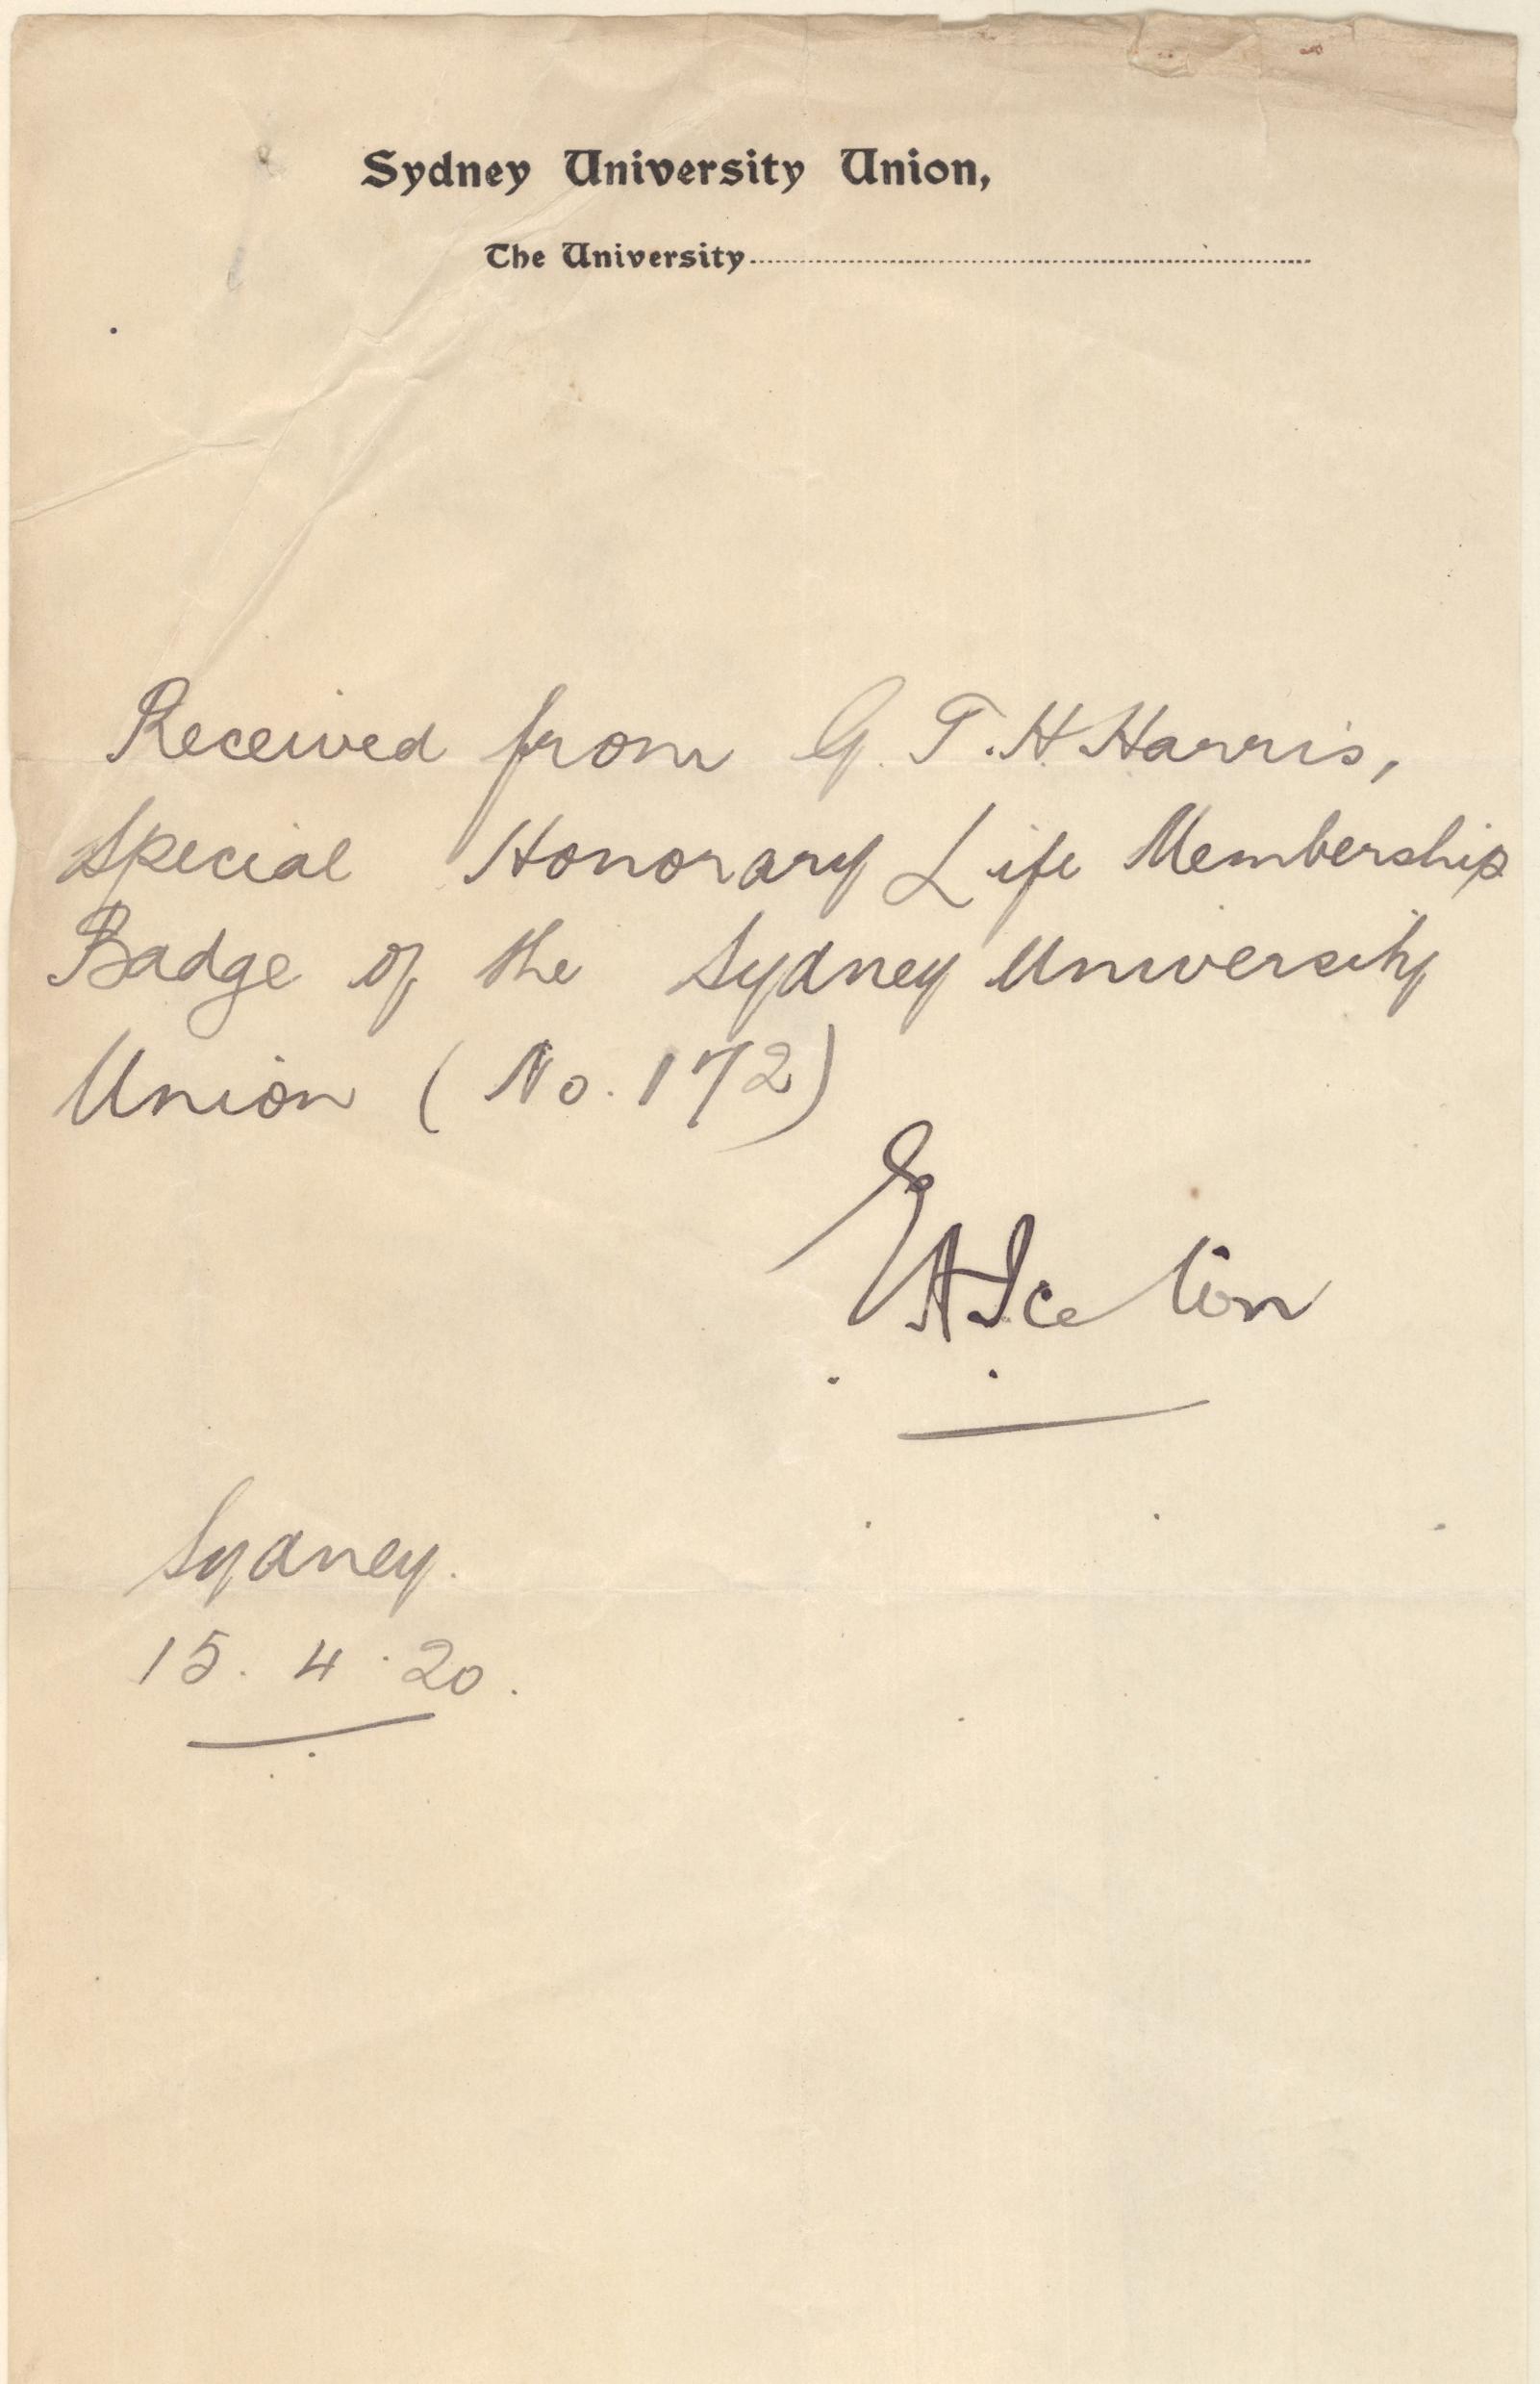 Sydney University Union,
The University
Received from G. T. H. Harris,
Special Honorary Life Membership
Badge of the Sydney University
Union (No. 172)
Sydney.
15. 4. 20.